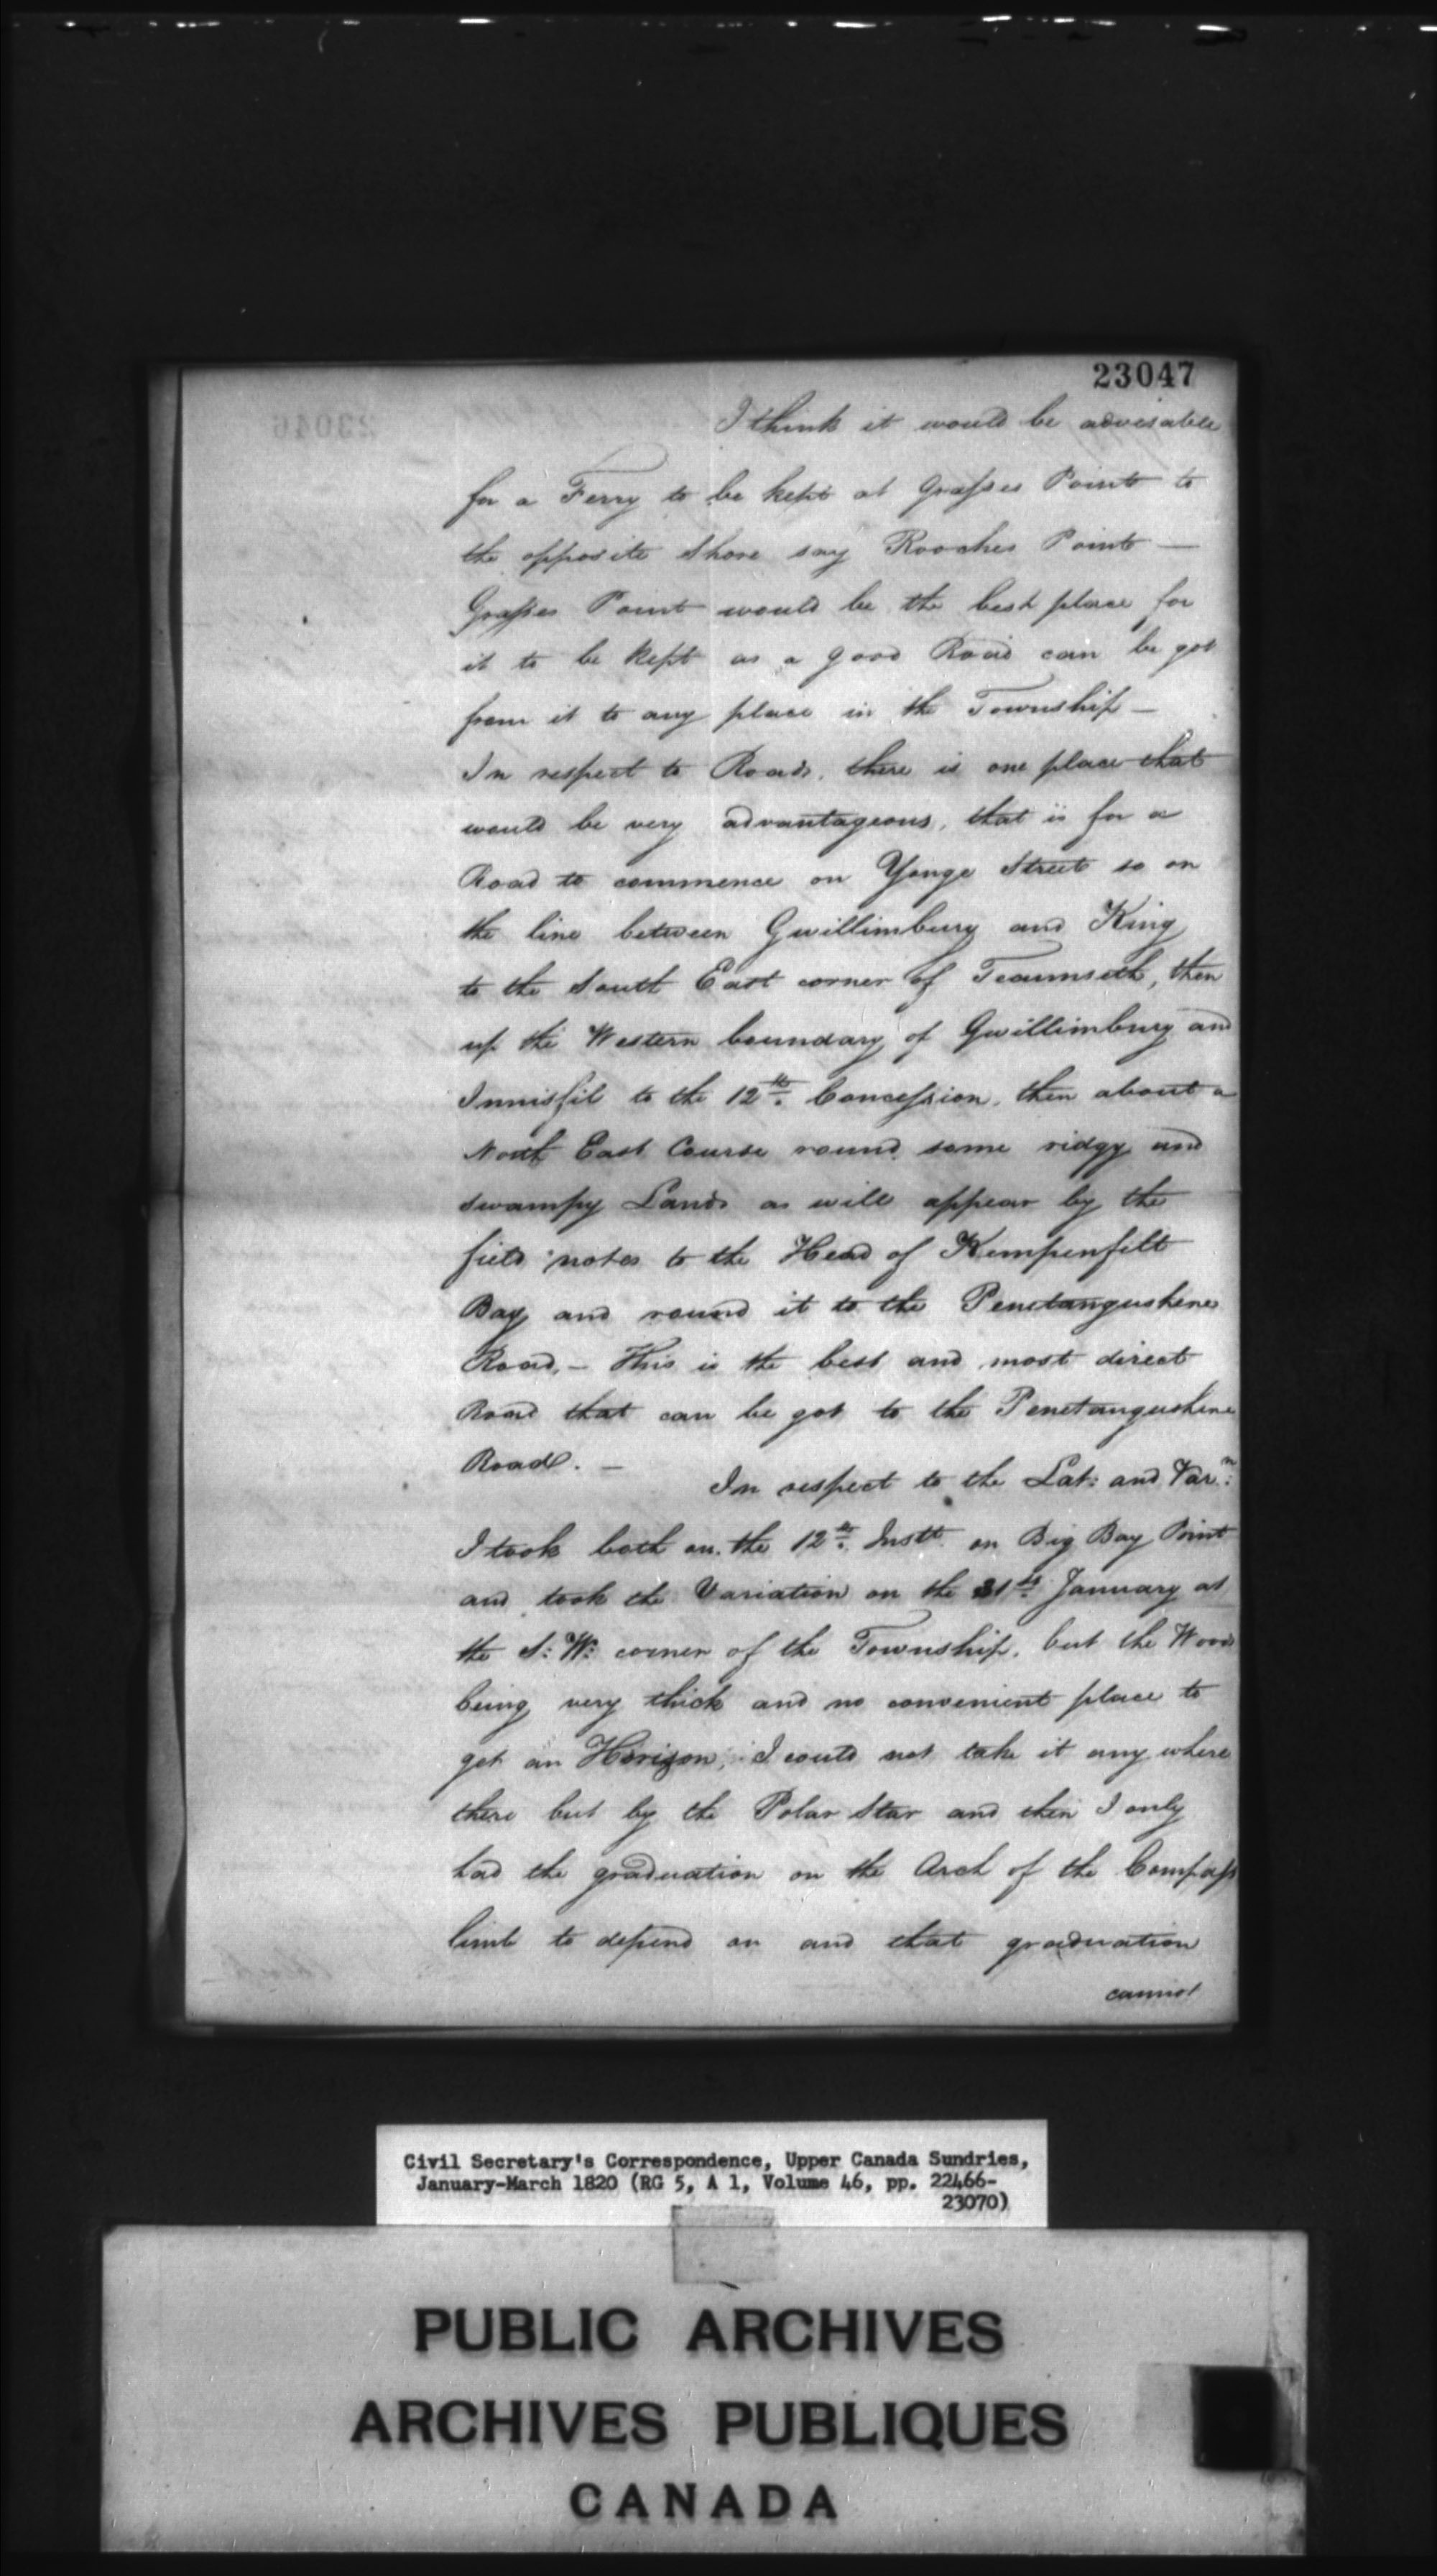 23047
I think it would be advisable
for a Ferry to be kept at Grasses Point to
the opposite Shore say Rooches Point —
Grasses Point would be the best place for
it to be kept as a good Road can be got
from it to any place in the Township —
In respect to Roads, there is one place that
would be very advantageous, that is for a
Road to commence on Yonge Street so on
the line between Gwillimbury and King
to the South East corner of Tecumseth, then
up the Western boundary of Gwillimbury and
Innisfil to the 12th Concession, then about a
North East Course round some ridgy and
swampy Lands as will appear by the
field notes to the Head of Kempenfelt
Bay and round it to the Penetangushene
Road, — This is the best and most direct
Road that can be got to the Penetangushene
Road. —
In respect to the Lat: and Varn:
I took both on the 12th Instt. on Big Bay Point
and took the Variation on the 31st January at
the S: W: corner of the Township, but the Woods
being very thick and no convenient place to
get an Horizon, I could not take it any where
there but by the Polar Star and then I only
had the graduation on the Arch of the Compass
limb to depend on and that graduation
cannot
Civil Secretary's Correspondence, Upper Canada Sundries,
January-March 1820 (RG 5, A 1, Volume 46, pp. 22466-
23070)
PUBLIC ARCHIVES
ARCHIVES PUBLIQUES
CANADA